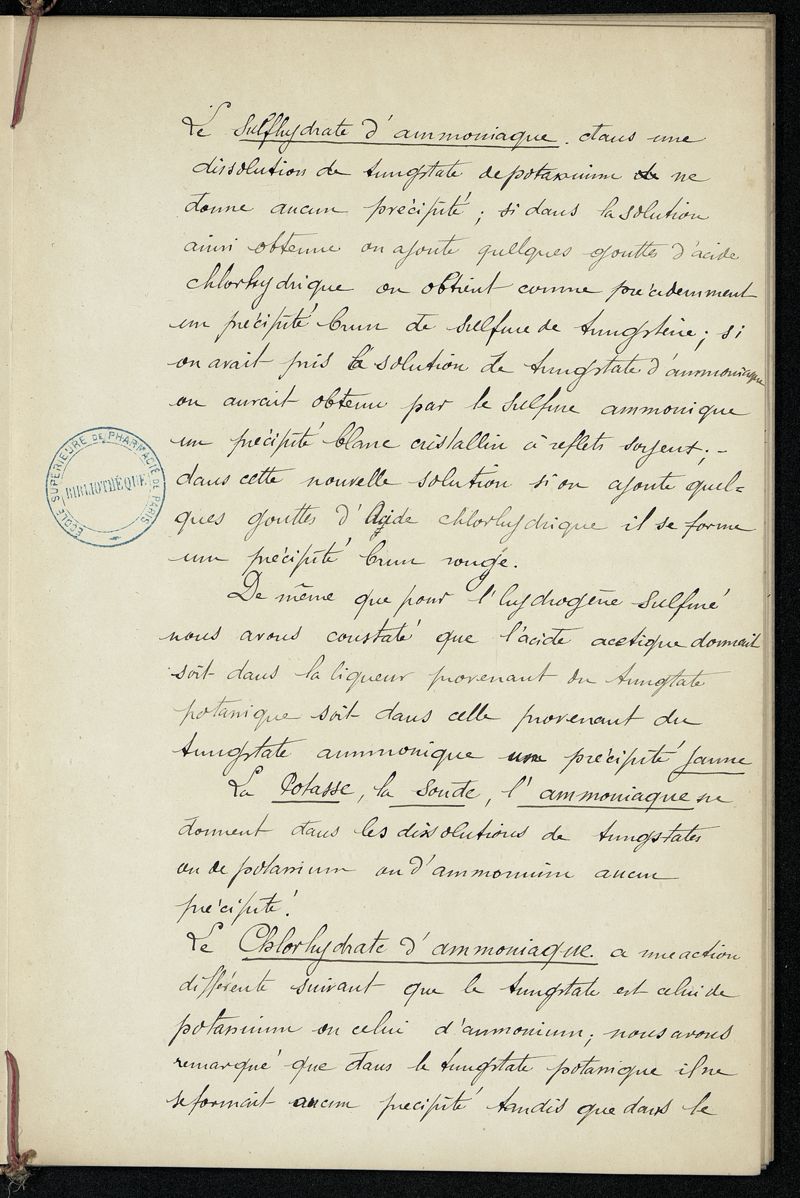 Le Sulfhydrate d'ammoniaque. dans une
dissolution de tungstate de potassium de ne
donne aucun précipité ; si dans la solution
ainsi obtenue on ajoute quelques gouttes d'acide
chlorhydrique on obtient comme précédemment
un précipité brun de sulfure de tungstène ; si
on avait pris la solution de tungstate d'ammoniaque
on aurait obtenu par le sulfure ammonique
un précipité blanc cristallin à reflets d'argent ; –
dans cette nouvelle solution si on ajoute quel=
ques gouttes d'Acide chlorhydrique il se forme
un précipité brun rouge.
De même que pour l'hydrogène sulfuré
nous avons constaté que l'acide acétique donnait
soit dans la liqueur provenant du tungtate
potassique soit dans celle provenant du
tungstate ammonique un précipité jaune
La Potasse, la Soude, l'ammoniaque ne
donnent dans les dissolutions de tungstates
ou de potassium ou d'ammonium aucun
précipité.
Le Chlorhydrate d'ammoniaque. a une action
différente suivant que le tungstate est celui de
potassium ou celui d'ammonium ; nous avons
remarqué que dans le tungstate potassique il ne
se formait aucun precipité tandis que dans le
ECOLE SUPERIEURE DE PHARMACIE DE PARIS
BIBLIOTHÈQUE